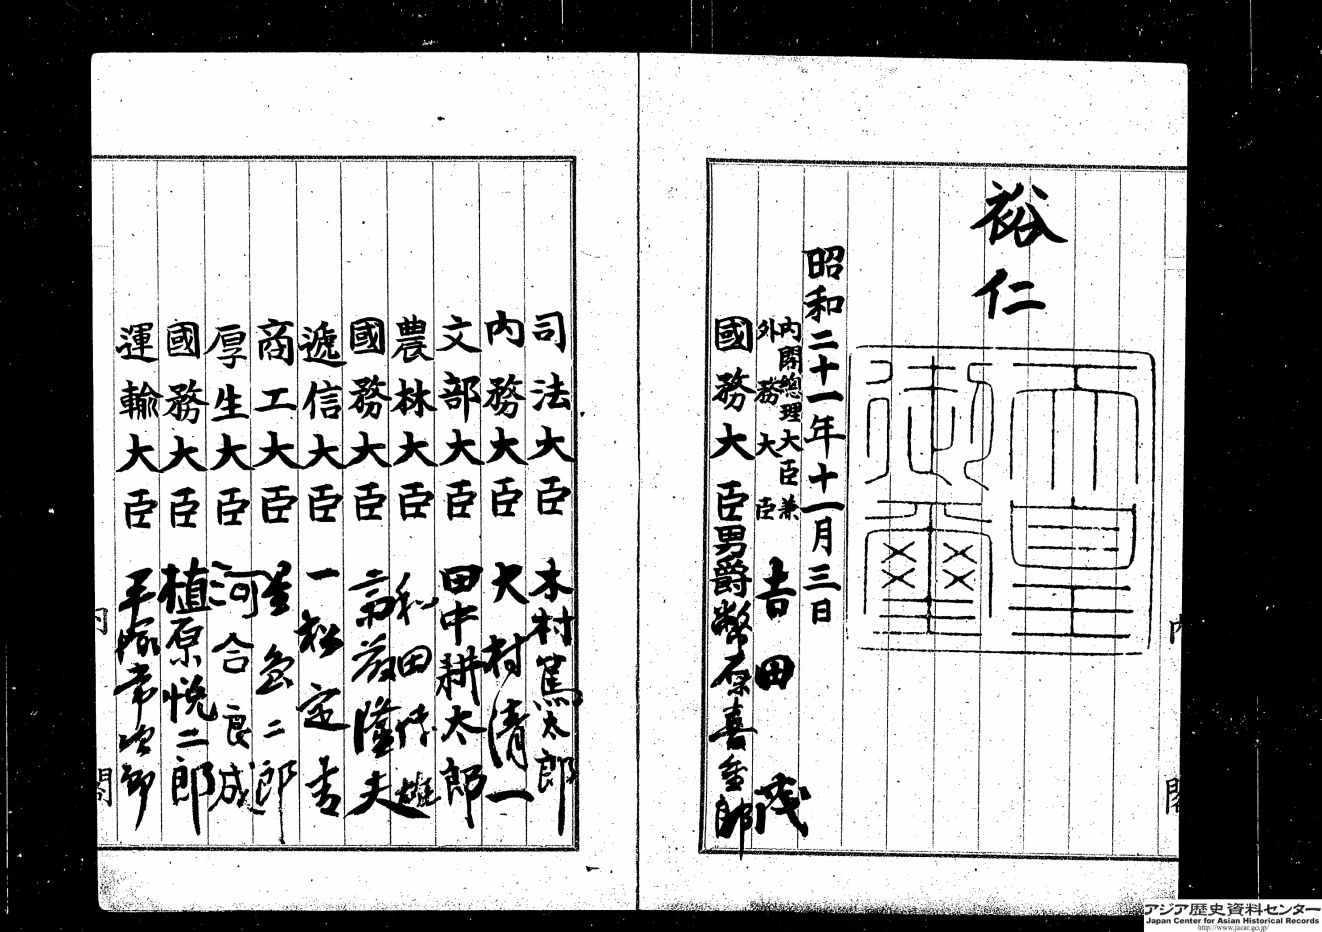 裕仁
天皇
御璽
昭和二十一年十一月三日
内閣總理大臣兼
外務大臣 吉田茂
國務大臣 男爵 幣原喜重郎
司法大臣 木村篤太郎
内務大臣 大村清一
文部大臣 田中耕太郎
農林大臣 和田博雄
國務大臣 斎藤隆夫
遞信大臣 一松定吉
商工大臣 星島二郎
厚生大臣 河合良成
國務大臣 植原悦二郎
運輸大臣 平塚常次郎
内閣
内閣
アジア歴史資料センター
Japan Center for Asian Historical Records
http://www.jacar.go.jp/